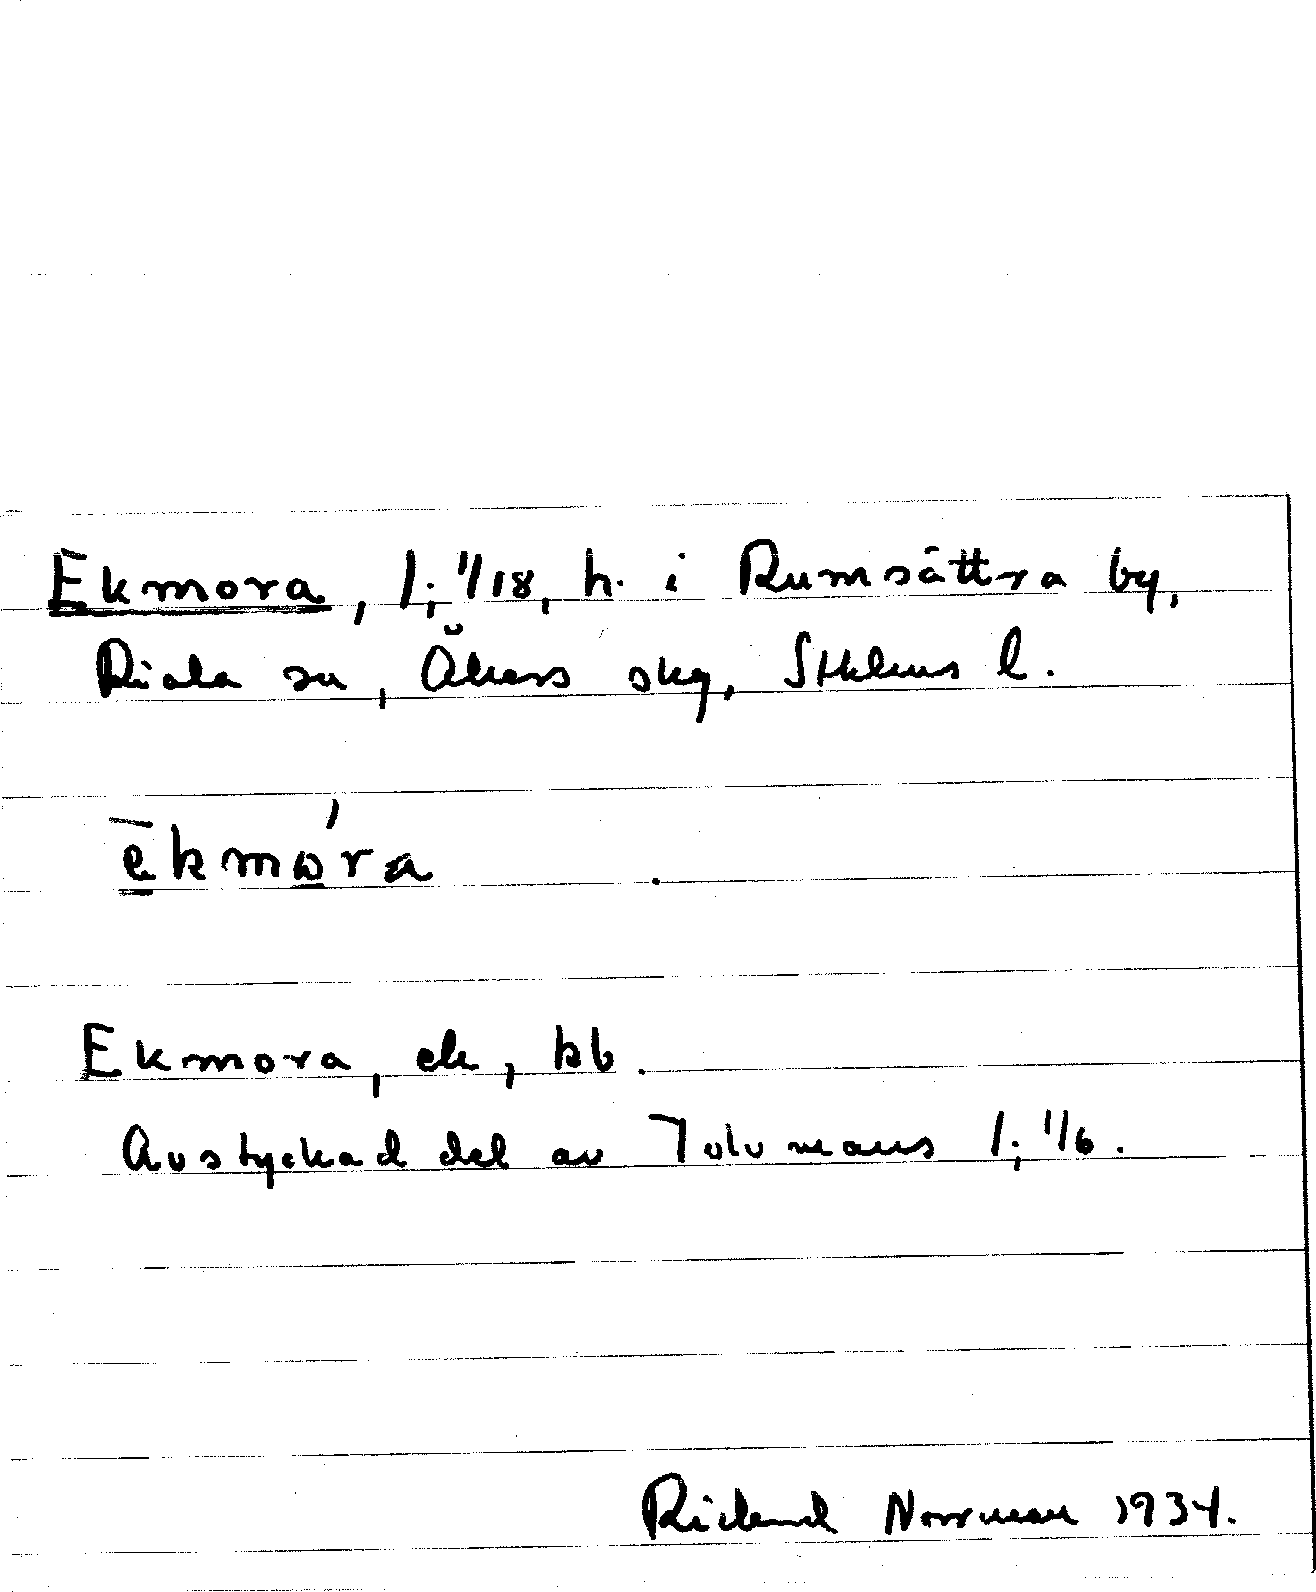 Ekmora, 1; 1/18, h. i Rumsättra by,
Riala sn, Åkers skg, Sthlms l.
ēkmo´ra
Ekmora, ek, kb.
Avstyckad del av Tolvmans 1; 1/6.
Rickard Norrman 1934.